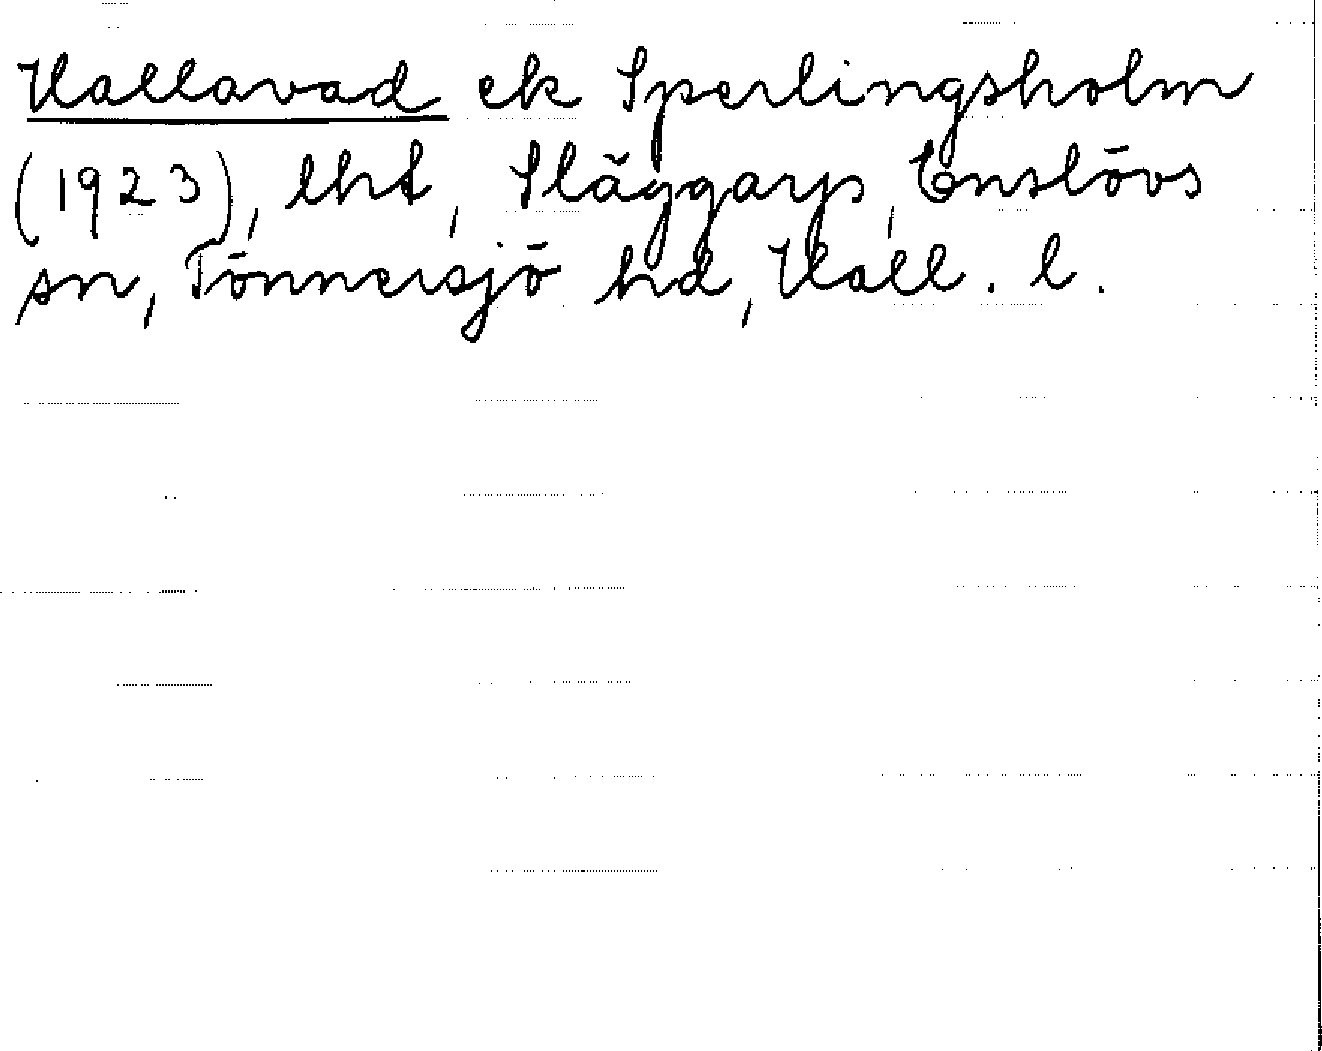 Hallavad ek Sperlingsholm
(1923), lht, Släggarp, Enslövs
sn, Tönnersjö hd, Hall. l.